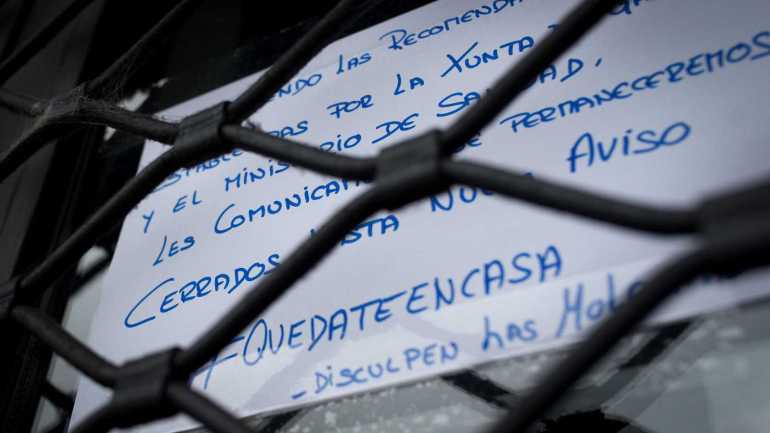 LAS RECOMENDA
POR LA XUNTA
Y EL MINISTERIO DE SANIDAD,
LES COMUNICA PERMANECEREMOS
CERRADOS HASTA NUEVO AVISO
#QUEDATEENCASA
- DISCULPEN LAS MOLE